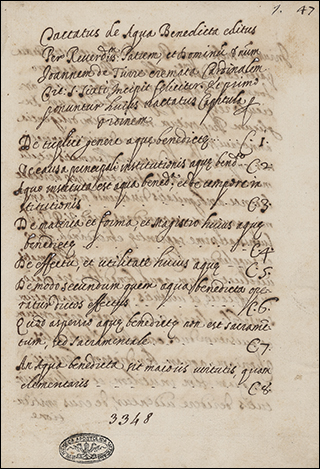 47
Tractatus de Aqua Benedicta editus
Per Reverdiss. Patrem, et Dominum D. num
Joannem de Turre cremata Cardinalem
Tit. S. Sixti Incipit feliciter, et primo
ponuntur huius tractatus Capitula
proinem
De triplici genere aquę benedictę C. 1.
De causa principali institutionis aquę bendę C. 2
Aquo instituta est aqua bened. et de tempore in
stitutionis C. 3
De materia et forma, et Magistro huius aquę
benedictę C. 4
De effectu, et utilitate huius aquę C. 5.
De modo secundum quem aqua benedicta ope
ratur dictos effectus C. 6.
Quod aspersio aquę benedictę non est sacrame
tum, sed sacramentale C. 7
An Aqua benedicta sit maioris virtutis quam
elementaris C. 8
3348